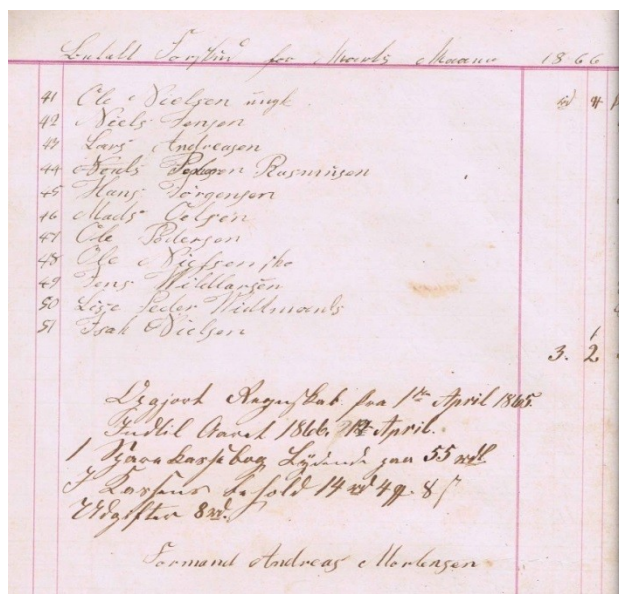 Betalt Torskud for Marts Maaned 1866
rd ꝗ
41 Ole Nielsen ungk
42 Niels Jensen
43 Lars Andreasen
44 Niels Rasmusen
45 Hans Jörgensen
46 Mads Oelsen
47 Ole Pedersen
48 Ole Nielsen
49 Jens Wildlarsen
50 Lisse Peder
51 Isak Nielsen
3. 2
Opgjort Regnskab fra 1ste April 1865.
Indtil Aaret 1866 April.
1 Sparekassebog Lydende paa 55 rdl
I Kassens behold 14 rd 4 ꝗ. 8 ſ
Udgifter 8 rd.
Formand Andreas Mortensen